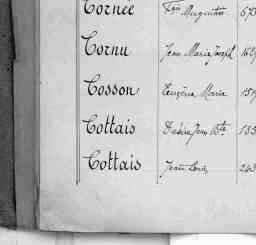 Cornée Augustin
Cornu Jean Marie Joseph
Cosson Eugène Marie
Cottais Désiré Jean Bte
Cottais Jean Louis